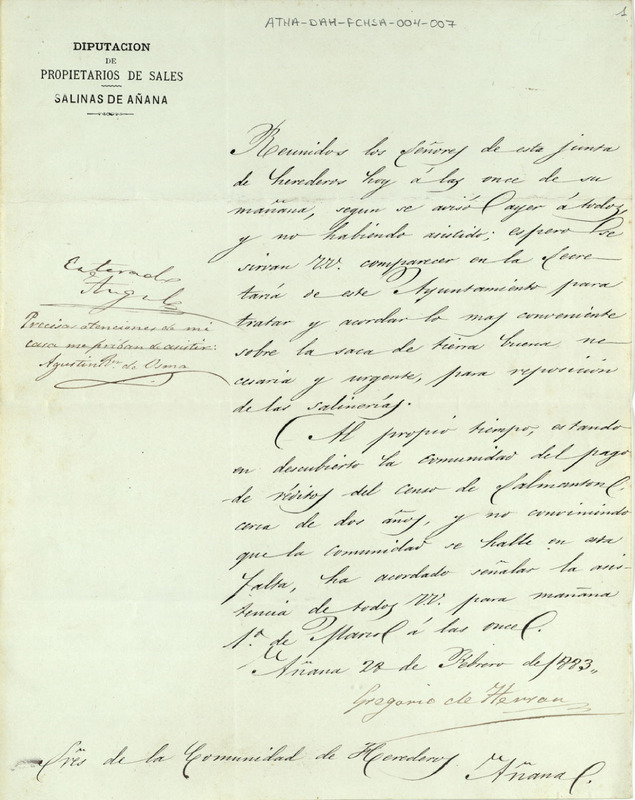 ATHA-DAH-FCHSA-004-007
1
DIPUTACION
DE
PROPIETARIOS DE SALES
SALINAS DE AÑANA
Reunidos los Señores de esta junta
de herederos hoy á las once de su
mañana, segun se avisó ayer á todos,
y no habiendo asistido; espero se
sirvan VV. comparecer en la Secre-
taría de este Ayuntamiento para
tratar y acordar lo mas conveniente
sobre la saca de tierra buena ne-
cesaria y urgente, para reposición
de las salinerías.
Al propio tiempo, estando
en descubierto la comunidad del pago
de réditos del censo de Salmanton
cerca de dos años, y no conviniendo
que la comunidad se halle en esta
falta, ha acordado señalar la asis-
tencia de todos VV. para mañana
1.º de Marzo á las once.
Añana 28 de Febrero de 1883,,
Gregorio de Herran
Enterado
Angulo
Precisas atenciones de mi
casa me privan de asistir.
Agustin Rz. de Osma
Sres de la Comunidad de Herederos de Añana